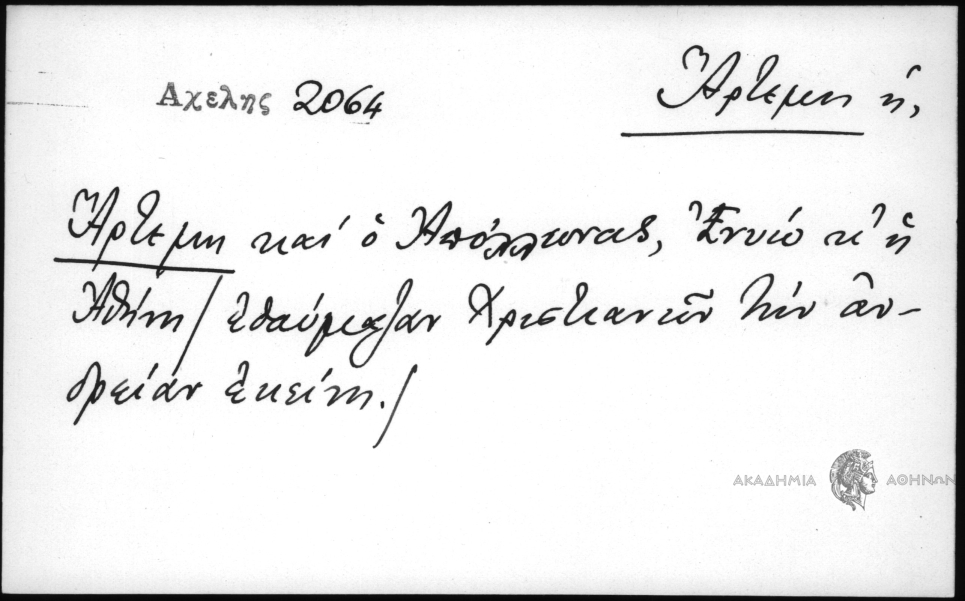 Αχελης 2064
Ἄρτεμη ἡ,
Ἄρτεμη καί ὁ Ἀπόλλωνας, Ἐνυώ κ' ἡ
Ἀθήνη / ἐθαύμαζαν Χριστιανῶν τήν ἀν-
δρείάν ἐκείνη. /
ΑΚΑΔΗΜΙΑ ΑΘΗΝΩΝ